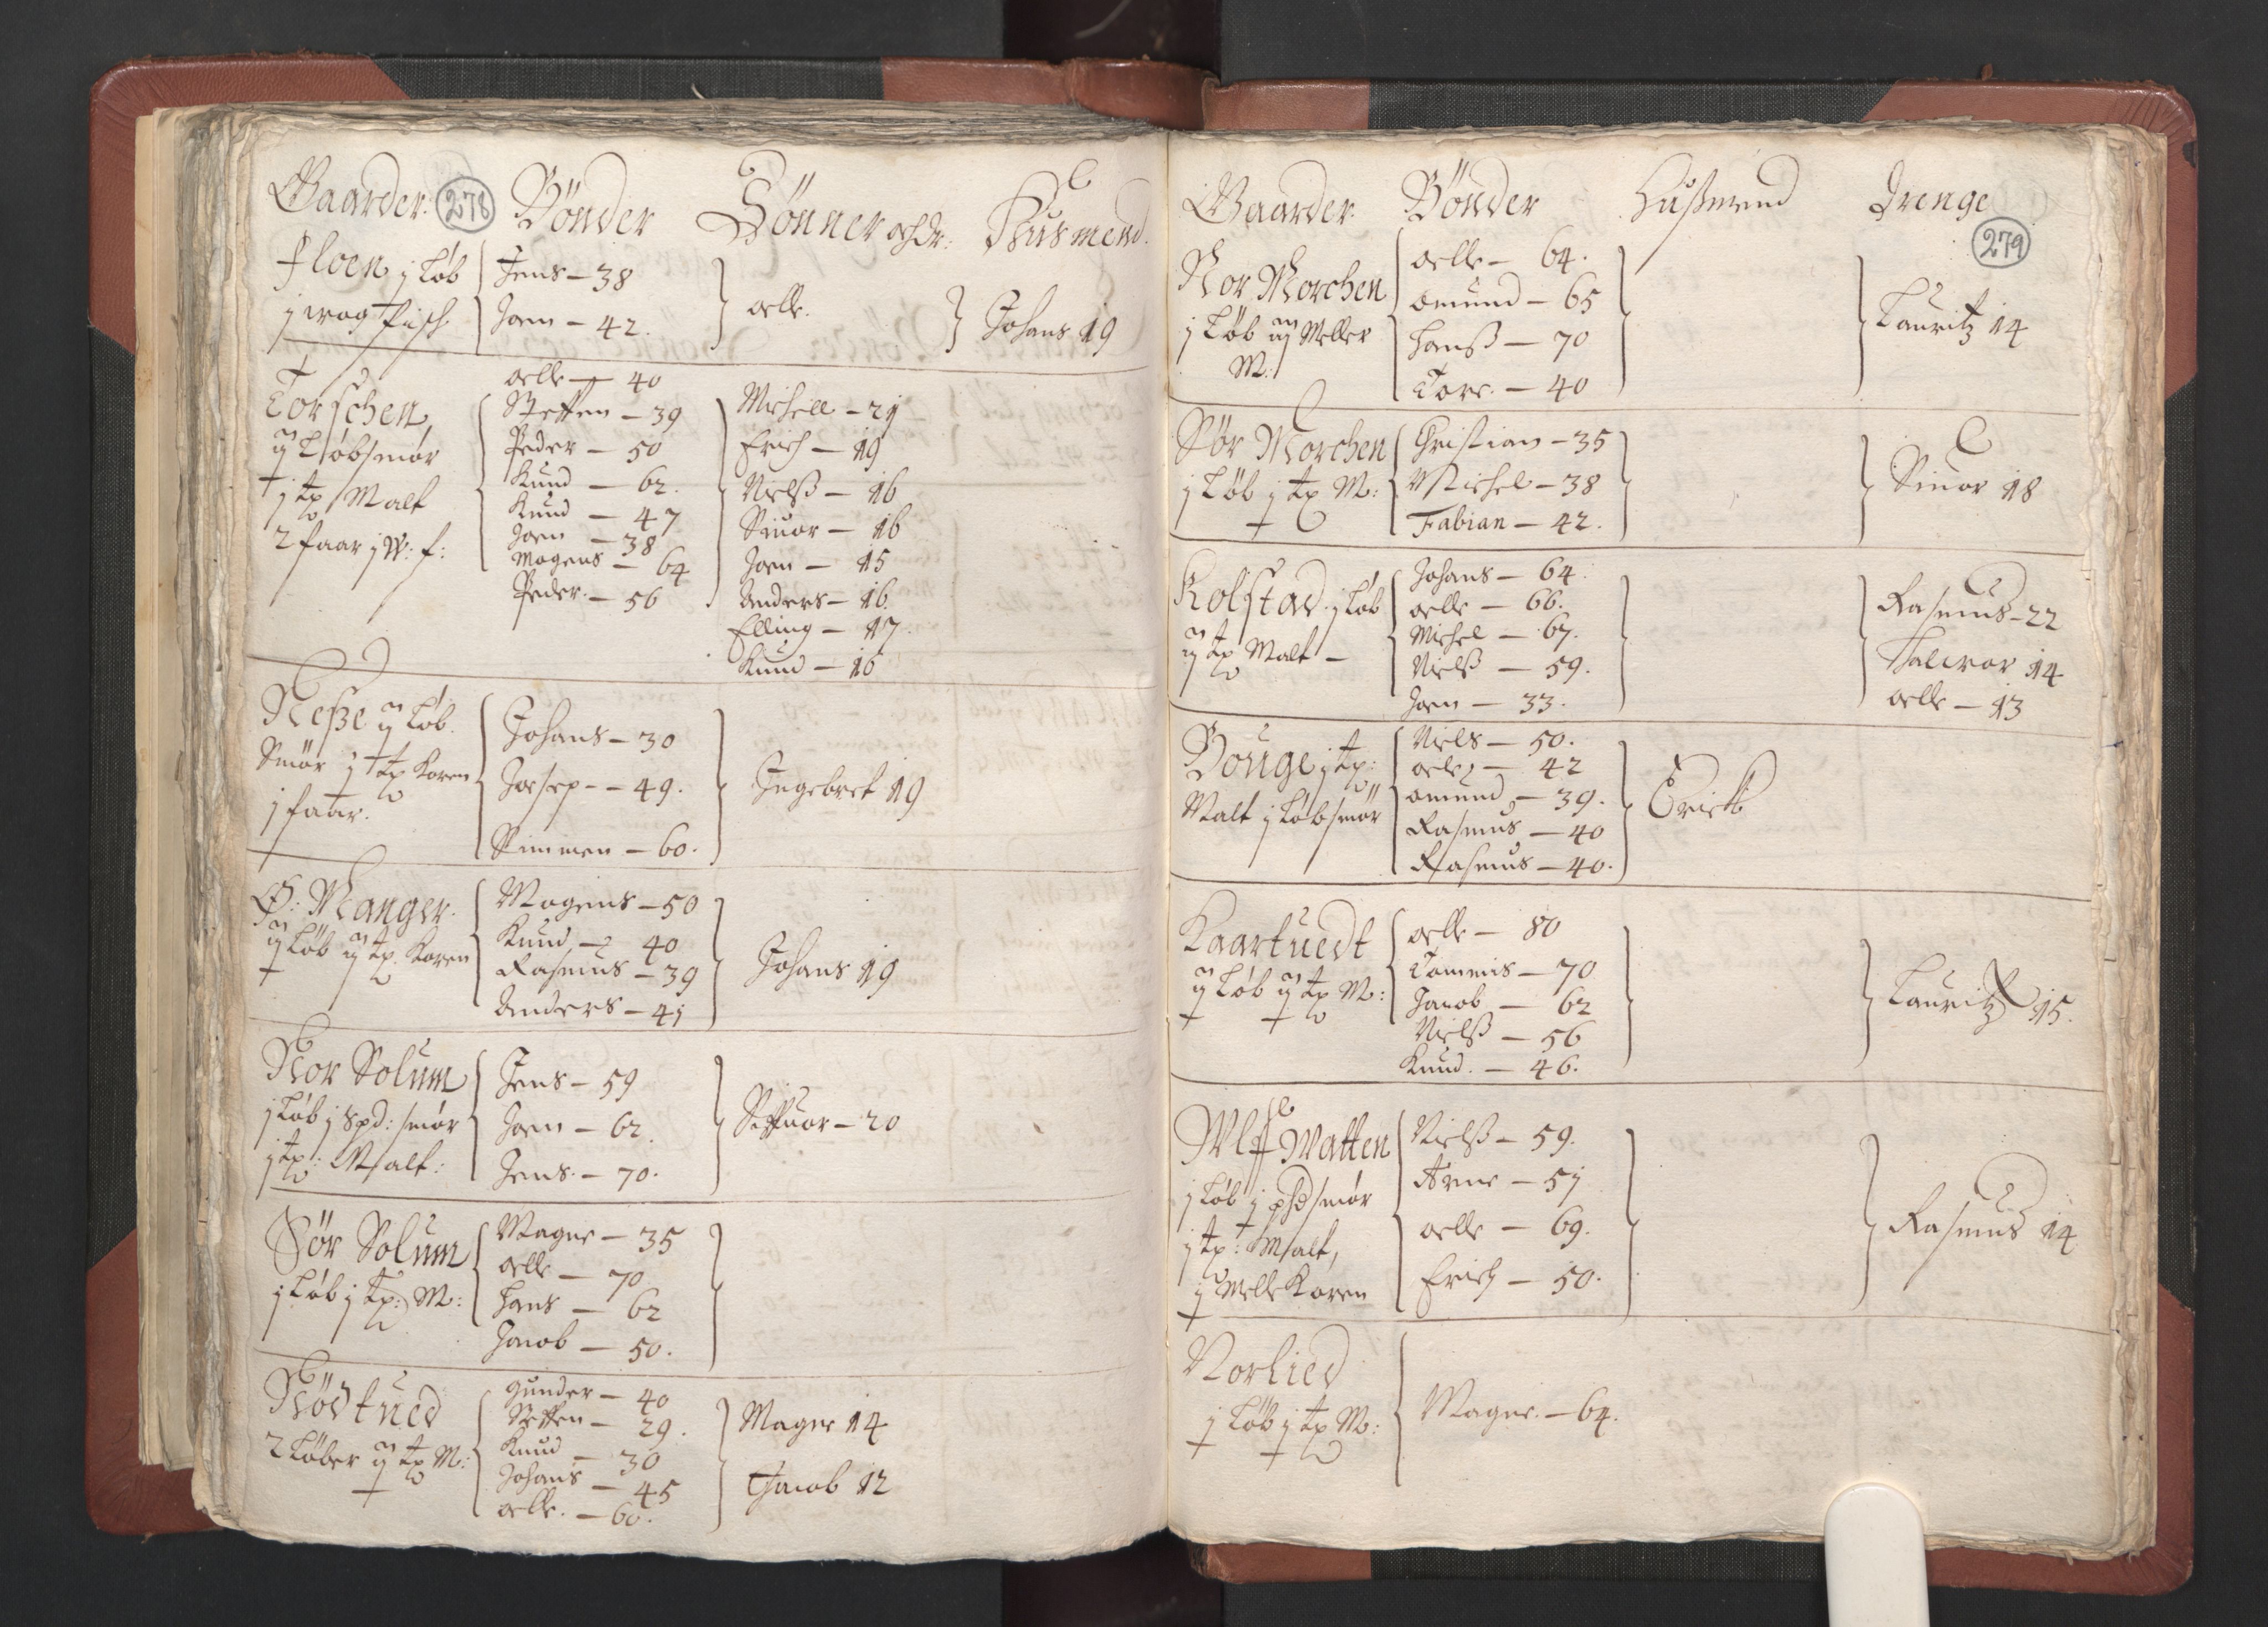 Gaarder. 278 Bönder Sönner och dr: Husmend.
Floen j Löb
j wog fisch
Jens – 38
Joen – 42.
oelle.
Johans 19
Torschen,
ij Löb smör
j tp Malt
2 faar j W: f:
oelle – 40
Steffen – 39
Peder – 50
Knud – 62.
Knud – 47
Joen – 38
Mogens – 64
Peder – 56
Michell – 21
Erich – 19
Nielß – 16
Siuor – 16
Joen – 15
Anders – 16.
Elling – 17.
Knud – 16
Neße ij Löb.
Smör j tp Koren
j faar.
Johans – 30
Joesep – 49.
Simmen – 60.
Ingebret 19
Ø: Manger.
ij Löb ij tp. Koren
Mogens – 50
Knud – 40
Rasmus – 39
Anders – 41
Johans 19
Nor Solum
j Löb j spd: smör
j tp: Malt:
Jens – 59
Joen – 62.
Jens – 70.
Siffuor – 20
Sör Solum
j Löb j tp: M:
Magne – 35
oelle – 70
Hans – 62
Jacob – 50.
Rödtued
2 Löber ij tp M:
Gunder – 40
Steffen – 29.
Knud – 30
Johans – 45
oelle. – 60.
Magne 14
Jacob 12
Gaarder. Bönder Hußmend Drenge
279
Nor Morchen
j Löb ij Meller
M:
oelle – 64.
Omund – 65
Hanß – 70
Tore. – 40
Lauritz 14
Sör Morchen
j Löb j tp M:
Christian – 35
Michel – 38
Fabian – 42.
Siuor 18
Kolstad j Löb
ij tp Malt –
Johans – 64.
oelle – 66.
Michel – 67.
Nielß – 59.
Joen – 33.
Rasmus – 22
Halwor 14
oelle – 13
Bouge j tp:
Malt j Löb smör
Niels – 50.
oele – 42
Omund – 39.
Rasmus – 40
Rasmus – 40.
Erick
Kaartuedt
ij Löb ij tp M:
oelle – 80
Tommis – 70
Jacob – 62
Nielß – 56
Knud. – 46.
Lauritz 15.
Watten
j Löb j smör
j tp: Malt,
j Melle Koren
Nielß – 59.
Arne – 51
oelle – 69.
Erich – 50.
Rasmus 14
Norlied
j Löb j tp M:
Magne. – 64.